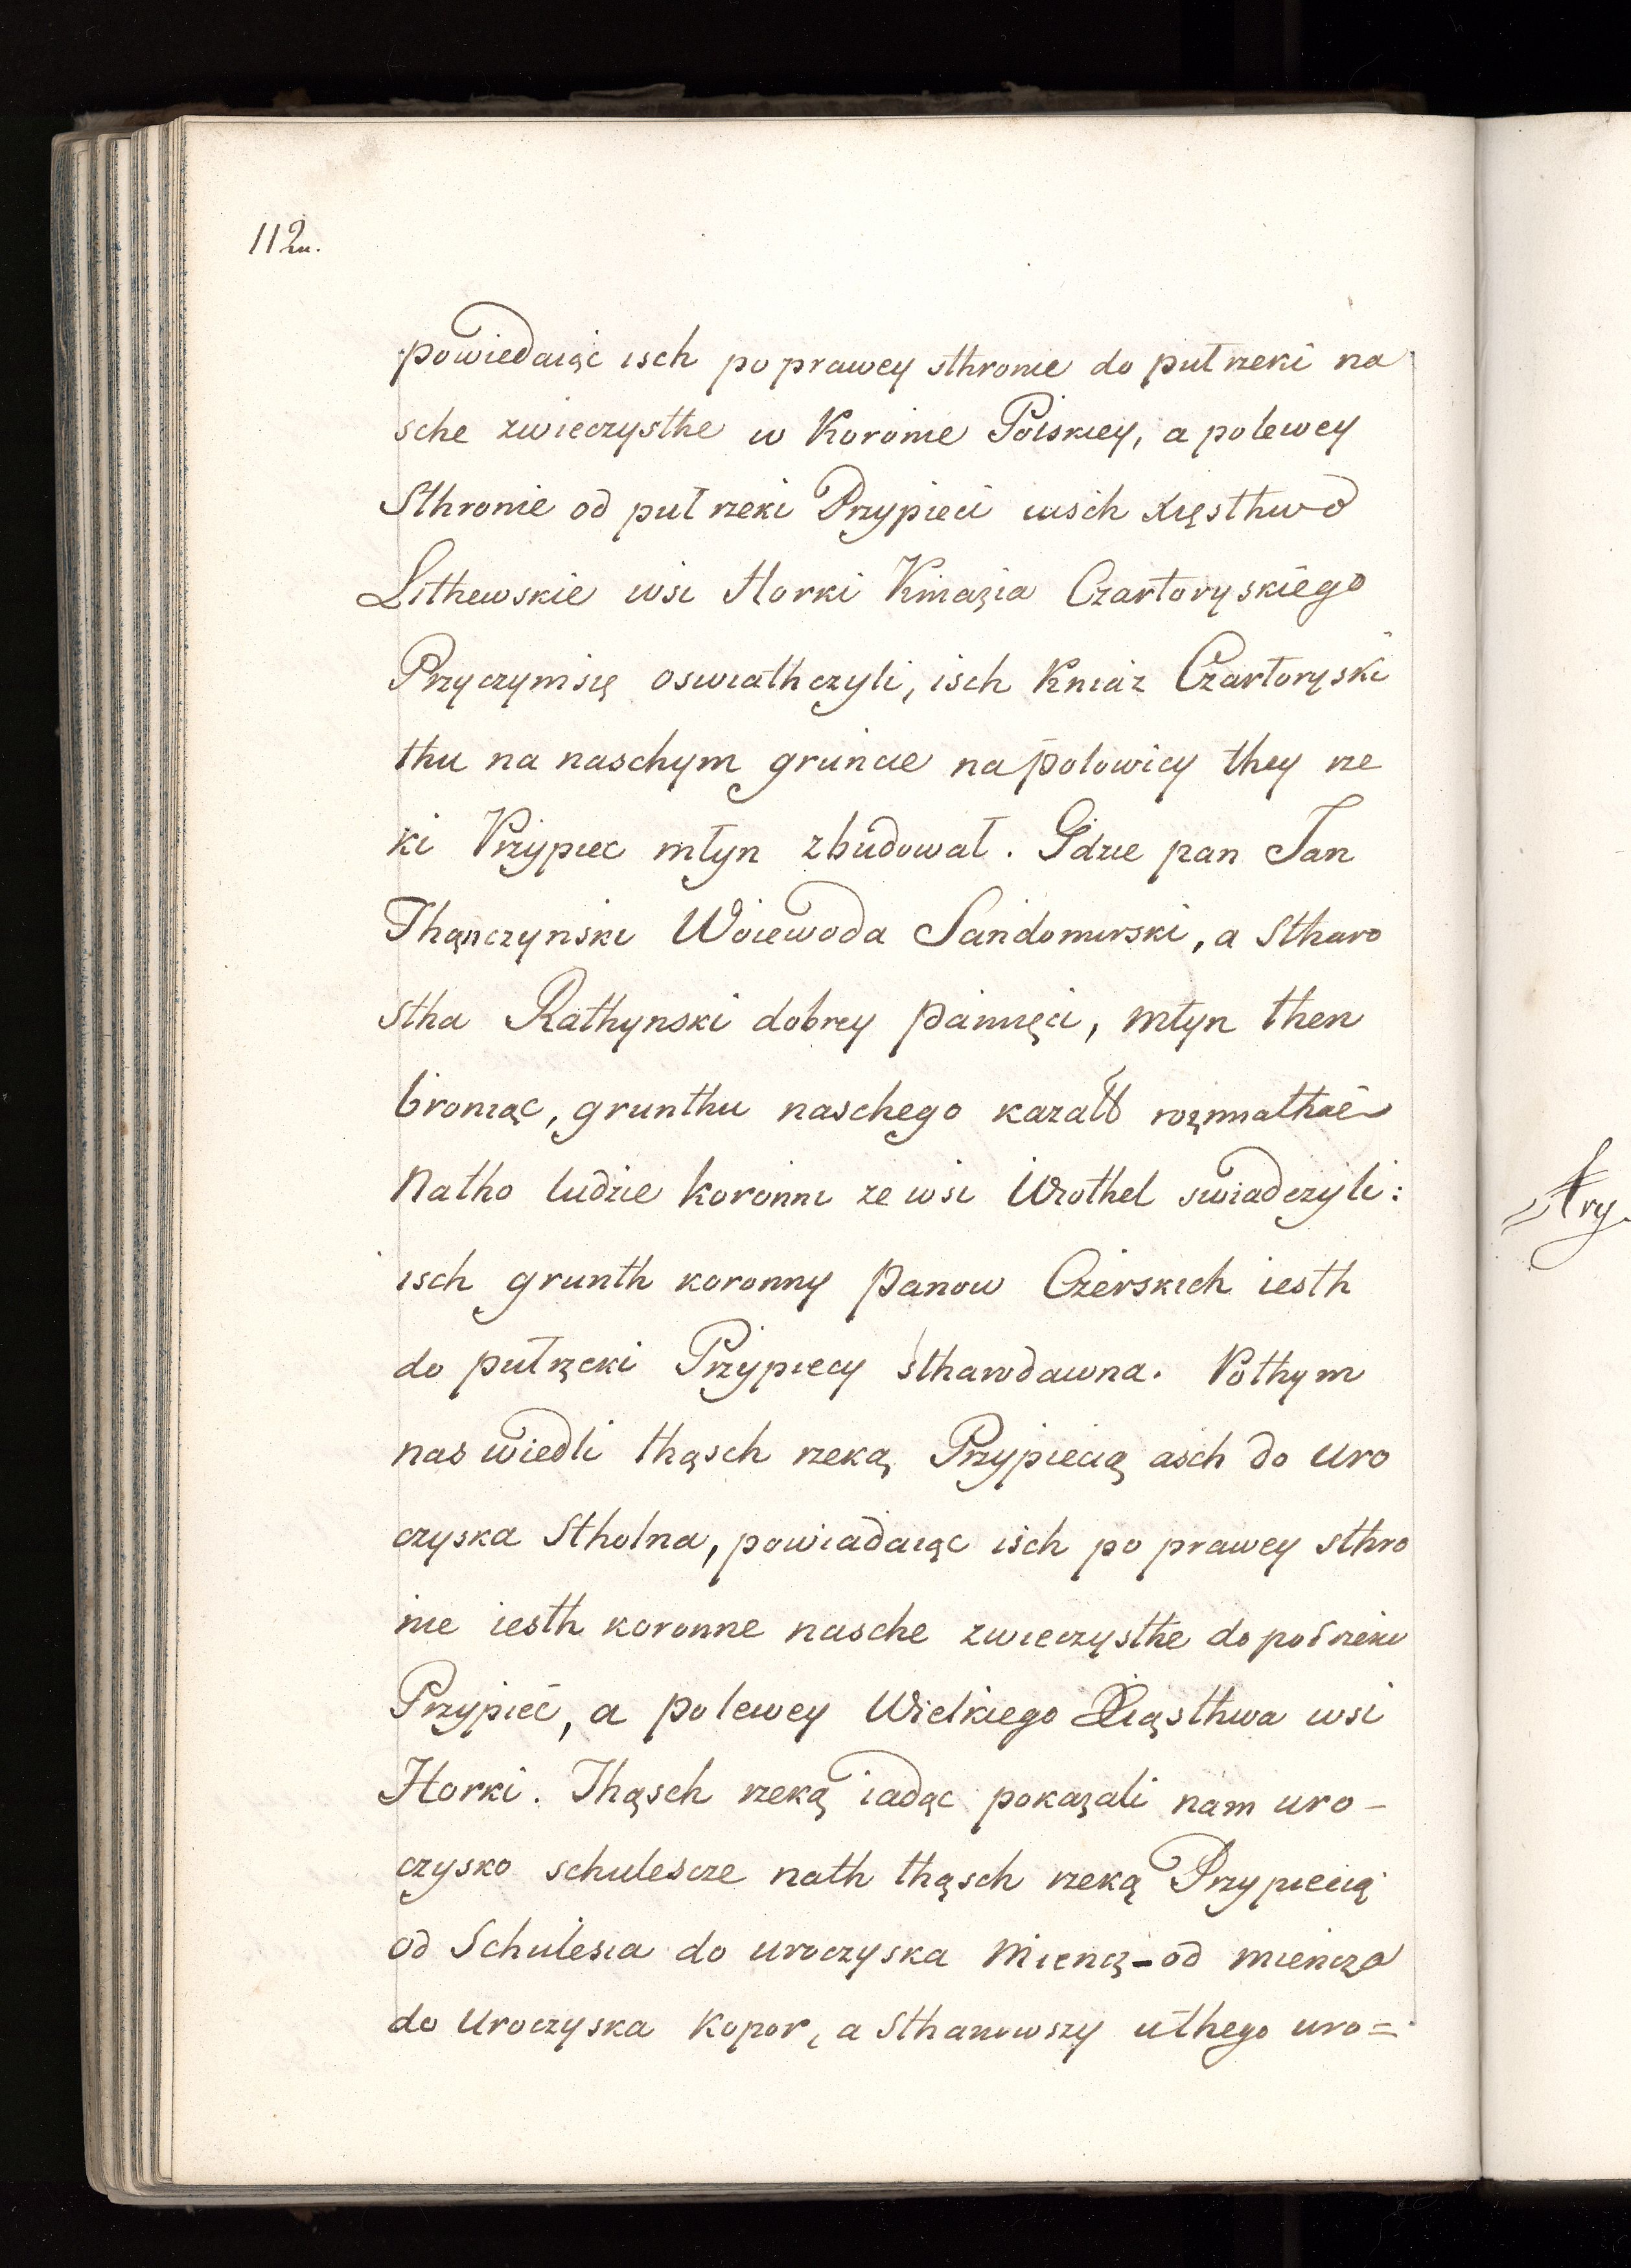 112u.
powiedaiąc isch po prawey sthronie do puł rzeki na
sche zwieczysthe w Koronie Polskiey, a po lewey
Sthronie od puł rzeki Przypieci iusch xięsthwo
Lithewskie wsi Horki Kniazia Czartoryskiego
Przyczymsię oswiathczyli, isch Kniaz Czartoryski
thu na naschym gruncie na polowicy they rze
ki Przypiec młyn zbudował. Gdzie pan Jan
Thąnczynski Woiewoda Sandomirski, a Stharo
stha Rathynski dobrey pamięci, młyn then
broniąc, grunthu naschego kazał rozmiathać
Natho ludzie koronni ze wsi Wrothel swiadczyli:
isch grunth koronny Panow Czerskich iesth
do puł rzeki Przypiecy sthardawna. Pothym
nas wiedli thąsch rzeką Przypiecią asch do Uro
czyska Stholna, powiadaiąc isch po prawey sthro
nie iesth koronne nasche zwieczysthe do poł rzeki
Przypieć, a po lewey Wielkiego Xiąsthwa wsi
Horki. Thąsch rzeką iadąc pokazali nam uro-
czysko schulescze nath thąsch rzeką Przypiecią
od Schulesia do uroczyska Miencz - od miencza
do Uroczyska Kopor, a Sthanowszy uthego uro=
Ary.